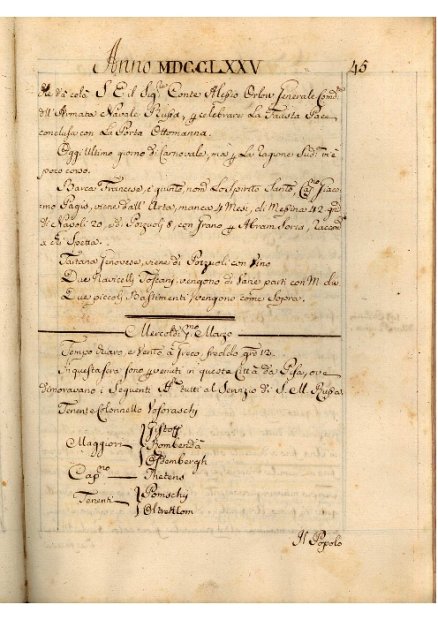 Anno MDCCLXXV 45
S. E. il Sig.re Conte Alessio Orlow Generale Com.te
dell'Armata Navale Russa, p celebrare La Fausta Pace
conclusa con La Porta Ottomanna.
Oggi Ultimo giorno di Carnovale, ma p La Ragone Sud.ta vi è
poco corso.
Barca Francese, è giunto, nom.to Lo Spirito Santo, Cap.no Giaco-
mo viene dall'Arta, manca 4 Mesi, di Messina 42 g.ni
di Napoli 20, e di Pozzuoli 8, con Grano p Abram Soria, Raccom.
a chi Spetta.
Tartana Genovese, viene di Pozzuoli con Vino
Due Navicelli Toscani, vengono di Varie parti con M.
Due piccoli Bastimenti, vengono come Sopra.
Mercoldi p.mo Marzo
Tempo chiaro, e Vento a Greco, freddo gra. 12.
In questa sera sono pervenuti in questa Città da Pisa, ove
dimoravano i Seguenti tutti al Servizio di S. M. Russa.
Tenente Colonnello Voforaschy
Maggiori
Gistoff
Bombenda
Oldembergh
Cap.no Thetens
Tenenti
Pomschj
Il Popolo